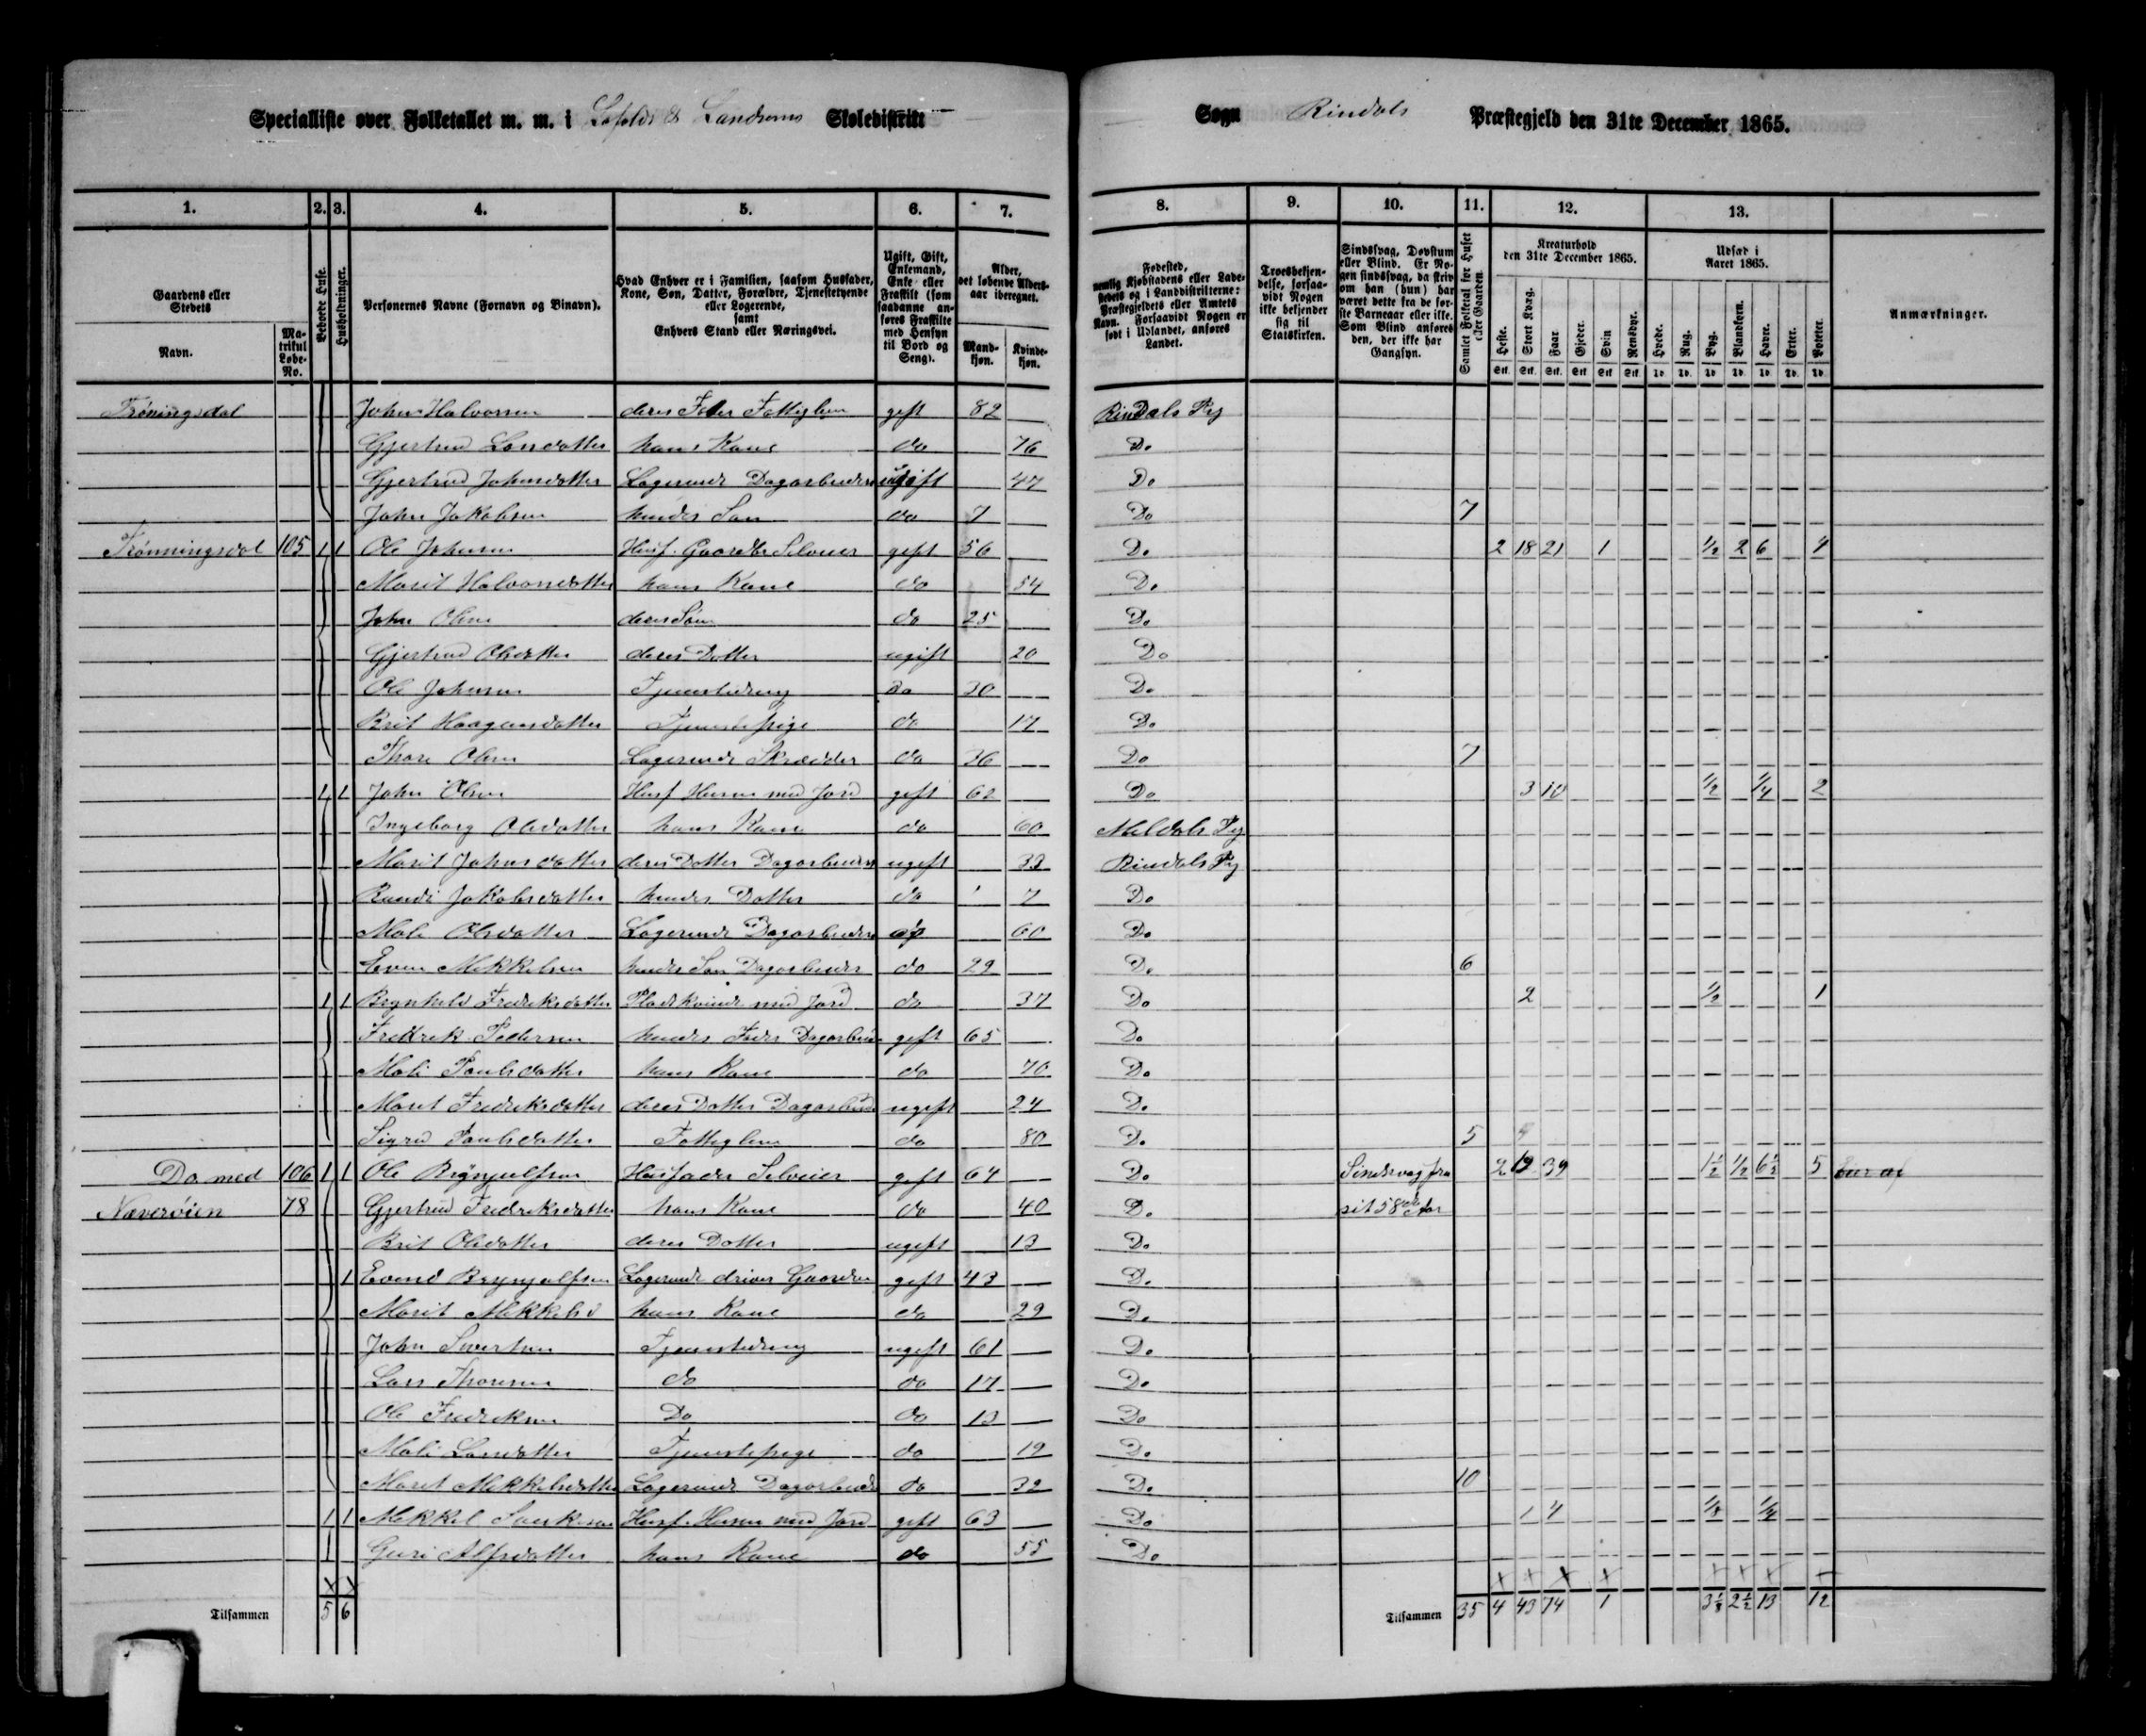 Specialliste over Folketallet m. m. i Lofolds & Landsems Skoledistrikt
Sogn Rindals Præstegjeld den 31te December 1865.
1. 2. 3. 4. 5. 6. 7. 8. 9. 10. 11. 12. 13.
Gaardens eller Stedets
Navn.
Matrikul Løbe-No.
Beboede Huse.
Husholdninger.
Personernes Navne (Fornavn og Binavn).
Hvad Enhver er i Familien, saasom Husfader, Kone, Søn, Datter, Forældre, Tjenestetyende eller Logerende, samt Enhvers Stand eller Næringsvei.
Ugift, Gift, Enkemand, Enke eller Fraskilt (som saadanne anføres Fraskilte med Hensyn til Bord og Seng).
Alder, det løbende Alders-aar iberegnet.
Mandkjøn. Kvindekjøn.
Fødested, nemlig Kjøbstadens eller Ladestedets og i Landdistrikterne: Præstegjeldets eller Amtets Navn. Forsaavidt Nogen er født i Udlandet, anføres Landet.
Troesbekjendelse, forsaavidt Nogen ikke bekjender sig til Statskirken.
Sindssvag, Døvstum eller Blind. Er Nogen sindssvag, da skriv om han (hun) har været dette fra de første Barneaar eller ikke. Som Blind anføres den, der ikke har Gangsyn.
Samlet Folketal for Huset eller Gaarden.
Kreaturhold den 31te December 1865.
Heste. Stort Kvæg. Faar. Gjeder. Svin Rensdyr.
Udsæd i Aaret 1865.
Hvede. Rug. Byg. Blandkorn. Havre. Erter. Poteter.
Anmærkninger.
Trøningsdal John Halvorsen deres Fader Fattiglem gift 82 Rindals Pgj
Gjertrud Larsdatter hans Kone do 76 Do
Gjertrud Johnsdatter Logerende Dagarbeiders ugift 47 Do
John Jakobsen hendes Søn do 7 Do 7
Trønningsdal 105 1 1 Ole Johnsen Husf. Gaardbr Selveier gift 56 Do 2 18 21 1 1/2 2 6 4
Marit Halvorsdatter hans Kone do 54 Do
John Olsen deres Søn do 25 Do
Gjertrud Olsdatter deres Datter ugift 20 Do
Ole Johnsen Tjenestedreng do 30 Do
Brit Haagensdatter Tjenestepige do 17 Do
Thore Olsen Logerende Skrædder do 36 Do 7
1 1 John Olsen Husf Husm med Jord gift 62 Do 3 10 1/2 1/4 2
Ingeborg Olsdatter hans Kone do 60 Meldals Pgj
Marit Johnsdatter deres Datter Dagarbeiders ugift 33 Rindals Pgj
Randi Jakobsdatter hendes Datter do 7 Do
Mali Olsdatter Logerende Dagarbeiders do 60 Do
Even Mikkelsen hendes Søn Dagarbeider do 29 Do 6
1 1 Brynhild Fredriksdatter Pladskvinde med Jord do 37 Do 2 1/2 1
Fredrik Pedersen hendes Fader Dagarbeider gift 65 Do
Mali Paulsdatter hans Kone do 70 Do
Marit Fredriksdatter deres Datter Dagarbeider ugift 24 Do
Sigrid Paulsdatter Fattiglem do 80 Do 5
Do med 106 1 1 Ole Brynjulfsen Husfader Selveier gift 64 Do Sindsvag fra 2 19 39 1 1/2 1/2 6 1/2 5
Næverøien 78 Gjertrud Fredriksdatter hans Kone do 40 Do sit 58de Aar
Brit Olsdatter deres Datter ugift 13 Do
1 Evend Brynjulfsen Logerende driver Gaarden gift 43 Do
Marit Mikkelsd hans Kone do 29 Do
John Sivertsen Tjenestedreng ugift 61 Do
Lars Thoresen do do 17 Do
Ole Fredriksen Do do 13 Do
Mali Larsdatter Tjenestepige do 19 Do
Marit Mikkelsdatter Logerende Dagarbeider do 32 Do 10
1 1 Mikkel Husf. Husm med Jord gift 63 Do 1 4 1/8 1/4
Guri Alfsdatter hans Kone do 55 Do
Tilsammen 5 6
Tilsammen 35 4 43 74 1 2 1/2 13 12